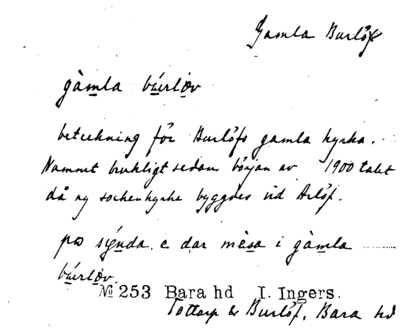 Gamla Burlöf
gàm̱la búrlöv
beteckning för Burlöfs gamla kyrka.
Namnet brukligt sedan början av 1900 talet
då ny sockenkyrka byggdes vid Arlöf.
pɒ sýnda e dar mèsa i gàmla
búrlöv
№ 253 Bara hd I. Ingers.
Tottarp & Burlöf, Bara hd